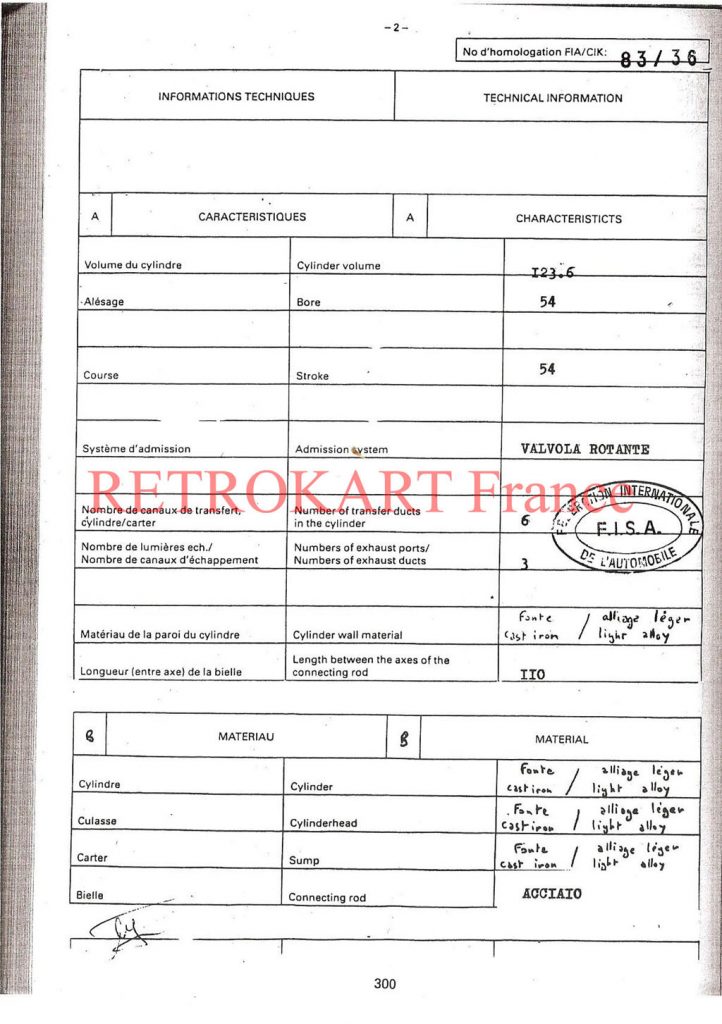 -2-
No d'homologation FIA/CIK: 83/36
INFORMATIONS TECHNIQUES TECHNICAL INFORMATION
A CARACTERISTIQUES A CHARACTERISTICTS
Volume du cylindre Cylinder volume I23.6
Alésage Bore 54
Course Stroke 54
Système d'admission Admission system VALVOLA ROTANTE
RETROKART France
Nombre de canaux de transfert, Number of transfer ducts
cylindre/carter in the cylinder 6
FEDERATION INTERNATIONALE
F.I.S.A.
DE L'AUTOMOBILE
Nombre de lumières ech./ Numbers of exhaust ports/
Nombre de canaux d'échappement Numbers of exhaust ducts 3
Fonte / alliage léger
Matériau de la paroi du cylindre Cylinder wall material cast iron / light alloy
Length between the axes of the
Longueur (entre axe) de la bielle connecting rod IIO
B MATERIAU B MATERIAL
Fonte / alliage léger
Cylindre Cylinder cast iron / light alloy
Fonte / alliage léger
Culasse Cylinderhead cast iron / light alloy
Fonte / alliage léger
Carter Sump cast iron / light alloy
Bielle Connecting rod ACCIAIO
300